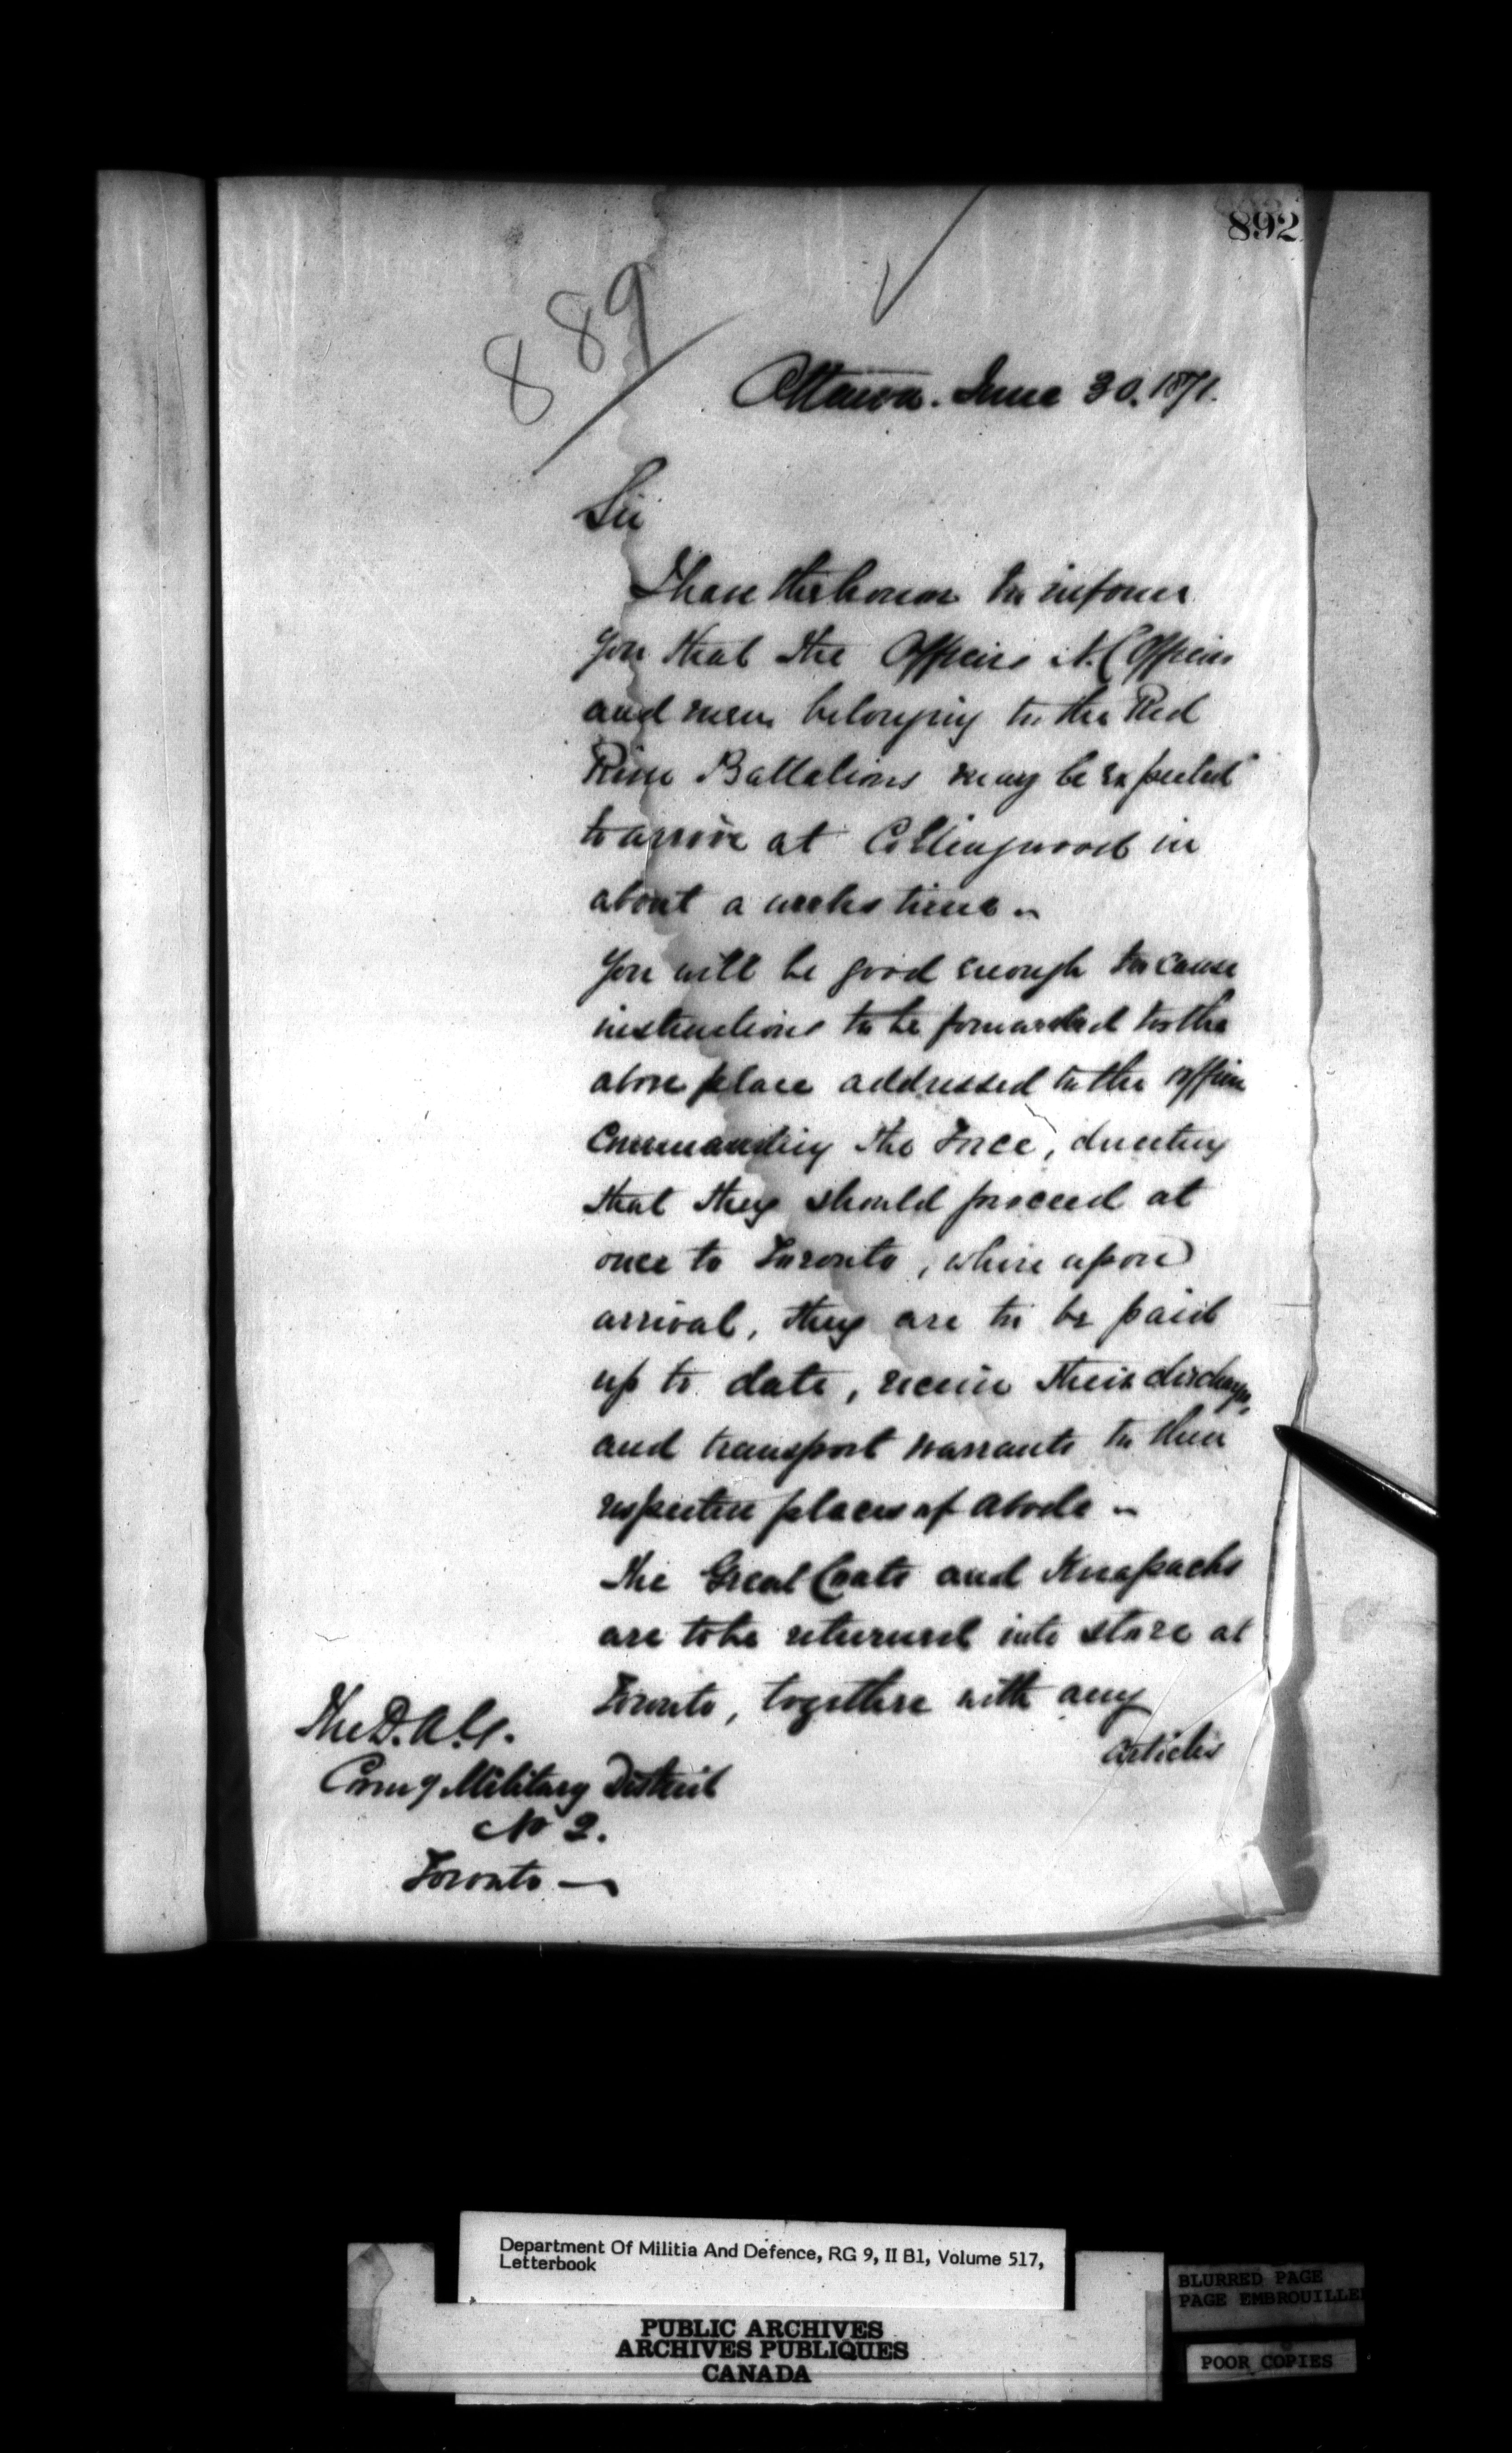 892
889
Ottawa. June 30. 1871.
Sir
I have the honor to inform
you that the Officers N. C Officers
and men belonging to the Red
River Battalions may be expected
to arrive at Collingwood in
about a weeks time.
You will be good enough to cause
instructions to be forwarded to the
above place addressed to the officer
Commanding the Force, directing
that they should proceed at
once to Toronto, where upon
arrival, they are to be paid
up to date, receive their discharge,
and transport warrants to their
respective places of abode -
The Great Coats and Knapsacks
are to be returned into store at
Toronto, together with any
articles
The D.A.G.
Comg Military District
No 2.
Toronto —
Department Of Militia And Defence, RG 9, II B1, Volume 517,
Letterbook
PUBLIC ARCHIVES
ARCHIVES PUBLIQUES
CANADA
BLURRED PAGE
PAGE EMBROUILLEE
POOR COPIES